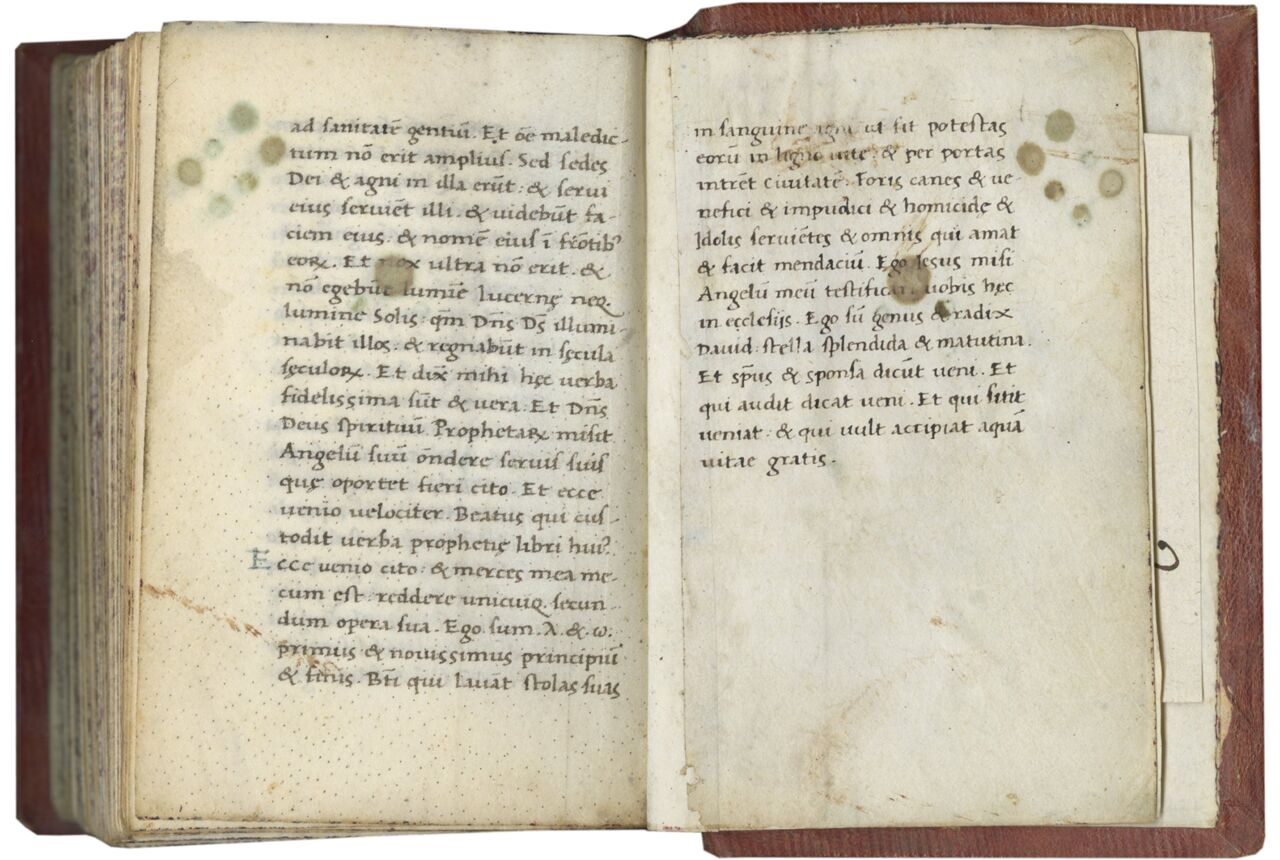 ad sanitatē gentiū. Et oē̄ maledic-
tum nō erit amplius. Sed sedes
Dei & agni in illa erūt: & servi
eius servient illi. & videbūt fa-
ciem eius. & nomē eius ī frōtibꝰ
eoꝝ. Et nox ultra nō erit. &
nō egebūt lumīe lucernę neq.
lumine Solis. qm̄ Dn̄s Ds̄ illumi-
nabit illos: & regnabūt in sęcula
sęculoꝝ. Et dix̄ mihi hęc verba
fidelissima sūt & vera. Et Dn̄s
Deus spirituū Prophetaꝝ misit
Angelū suū on̄dere servis suis
quę oportet fieri cito. Et ecce
venio velociter. Beatus qui cus-
todit verba prophetię libri huiꝰ.
Ecce venio cito: & merces mea me-
cum est: reddere unicuiq. secun
dum opera sua. Ego sum. λ. & ω.
primus & novissimus principiū
& finis. Bt̄i qui lavāt stolas suas
in sanguine agni ut sit potestas
eorū in ligno vite: & per portas
intrēt Civitatē. Foris canes & ve-
nefici & impudici & homicidę &
Idolis serviētes & omnis qui amat
& facit mendaciū. Ego Jesus misi
Angelū meū vobis hęc
in ecclesijs. Ego sū genus & radix
David. stella splendida & matutina.
Et sp̄us & sponsa dicūt veni. Et
qui audit dicat veni. Et qui sitit
veniat. & qui vult accipiat aquā
vitae gratis.